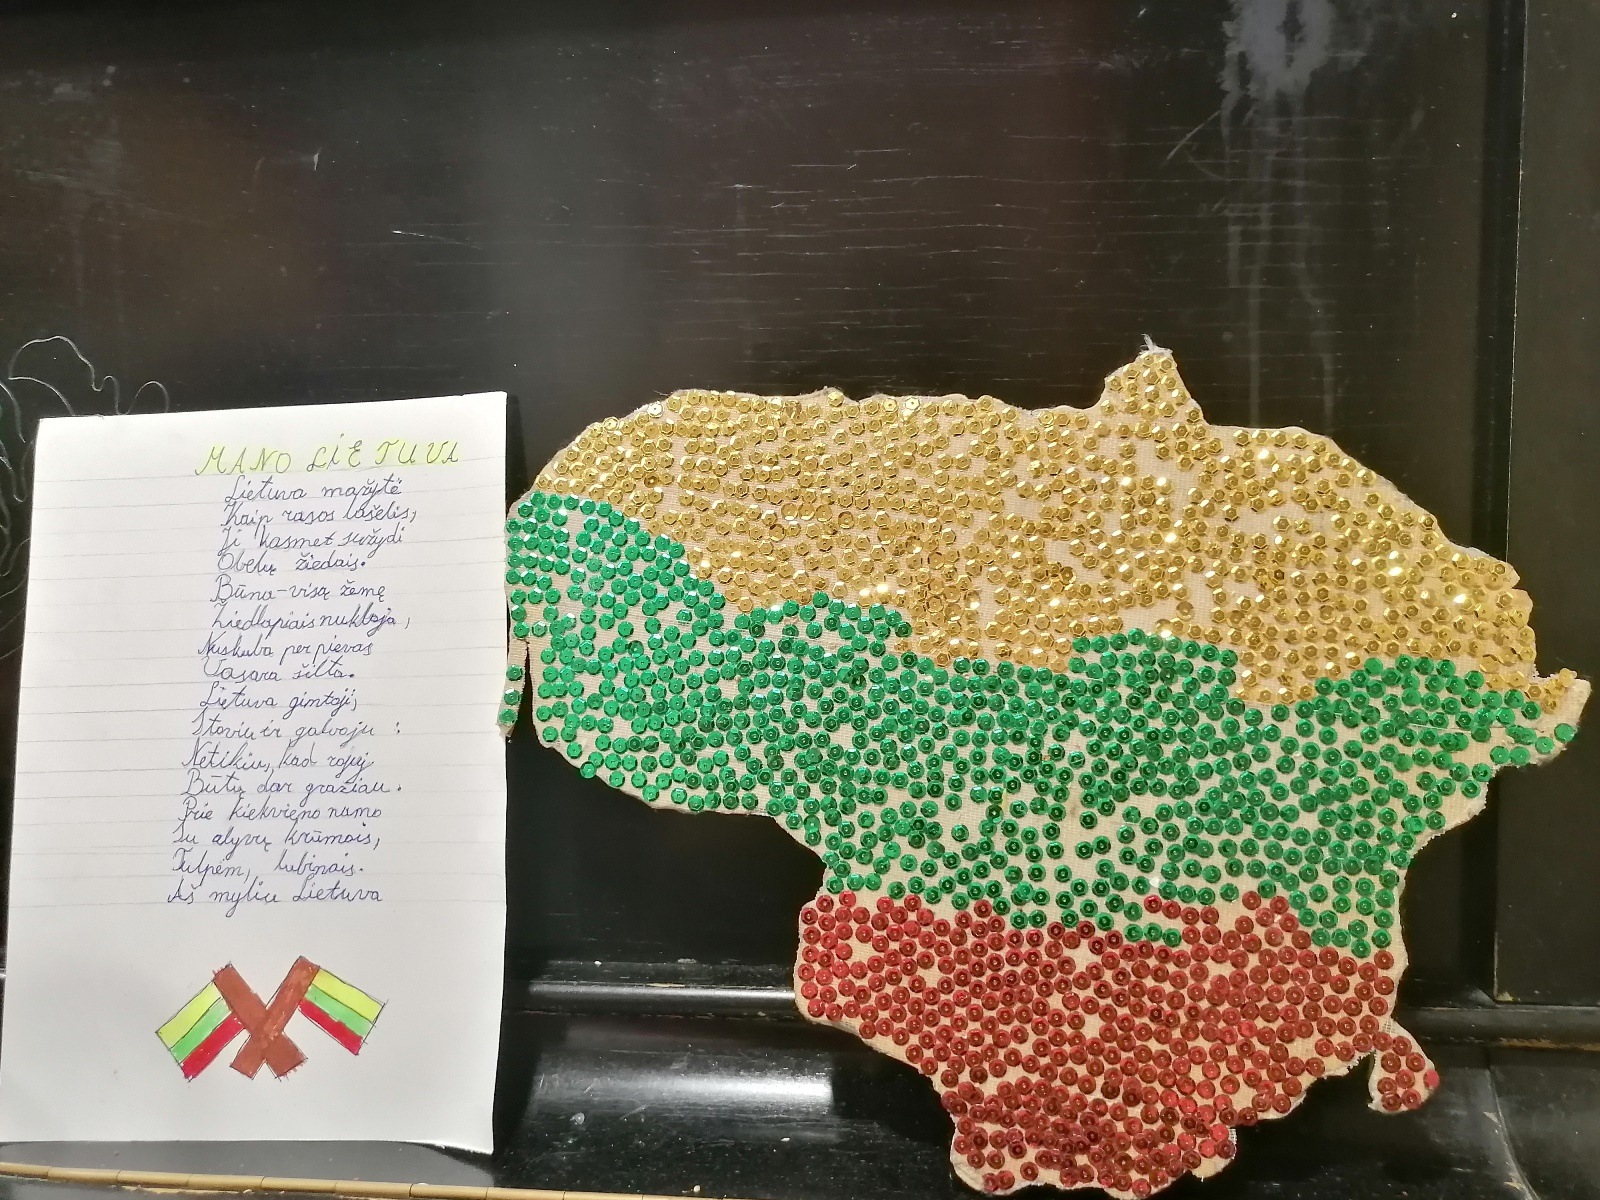 MANO LIETUVA
Lietuva mažytė
Kaip rasos lašelis,
Ji kasmet sužydi
Obelų žiedais.
Būna-visą žemę
Žiedlapiais nukloja,
Nuskuba per pievas
Vasara šilta.
Lietuva gimtoji,
Stoviu ir galvoju :
Netikiu, kad rojuj
Būtų dar gražiau.
Prie kiekvieno namo
Su alyvų krūmais,
Tulpėm, lubinais.
Aš myliu Lietuva